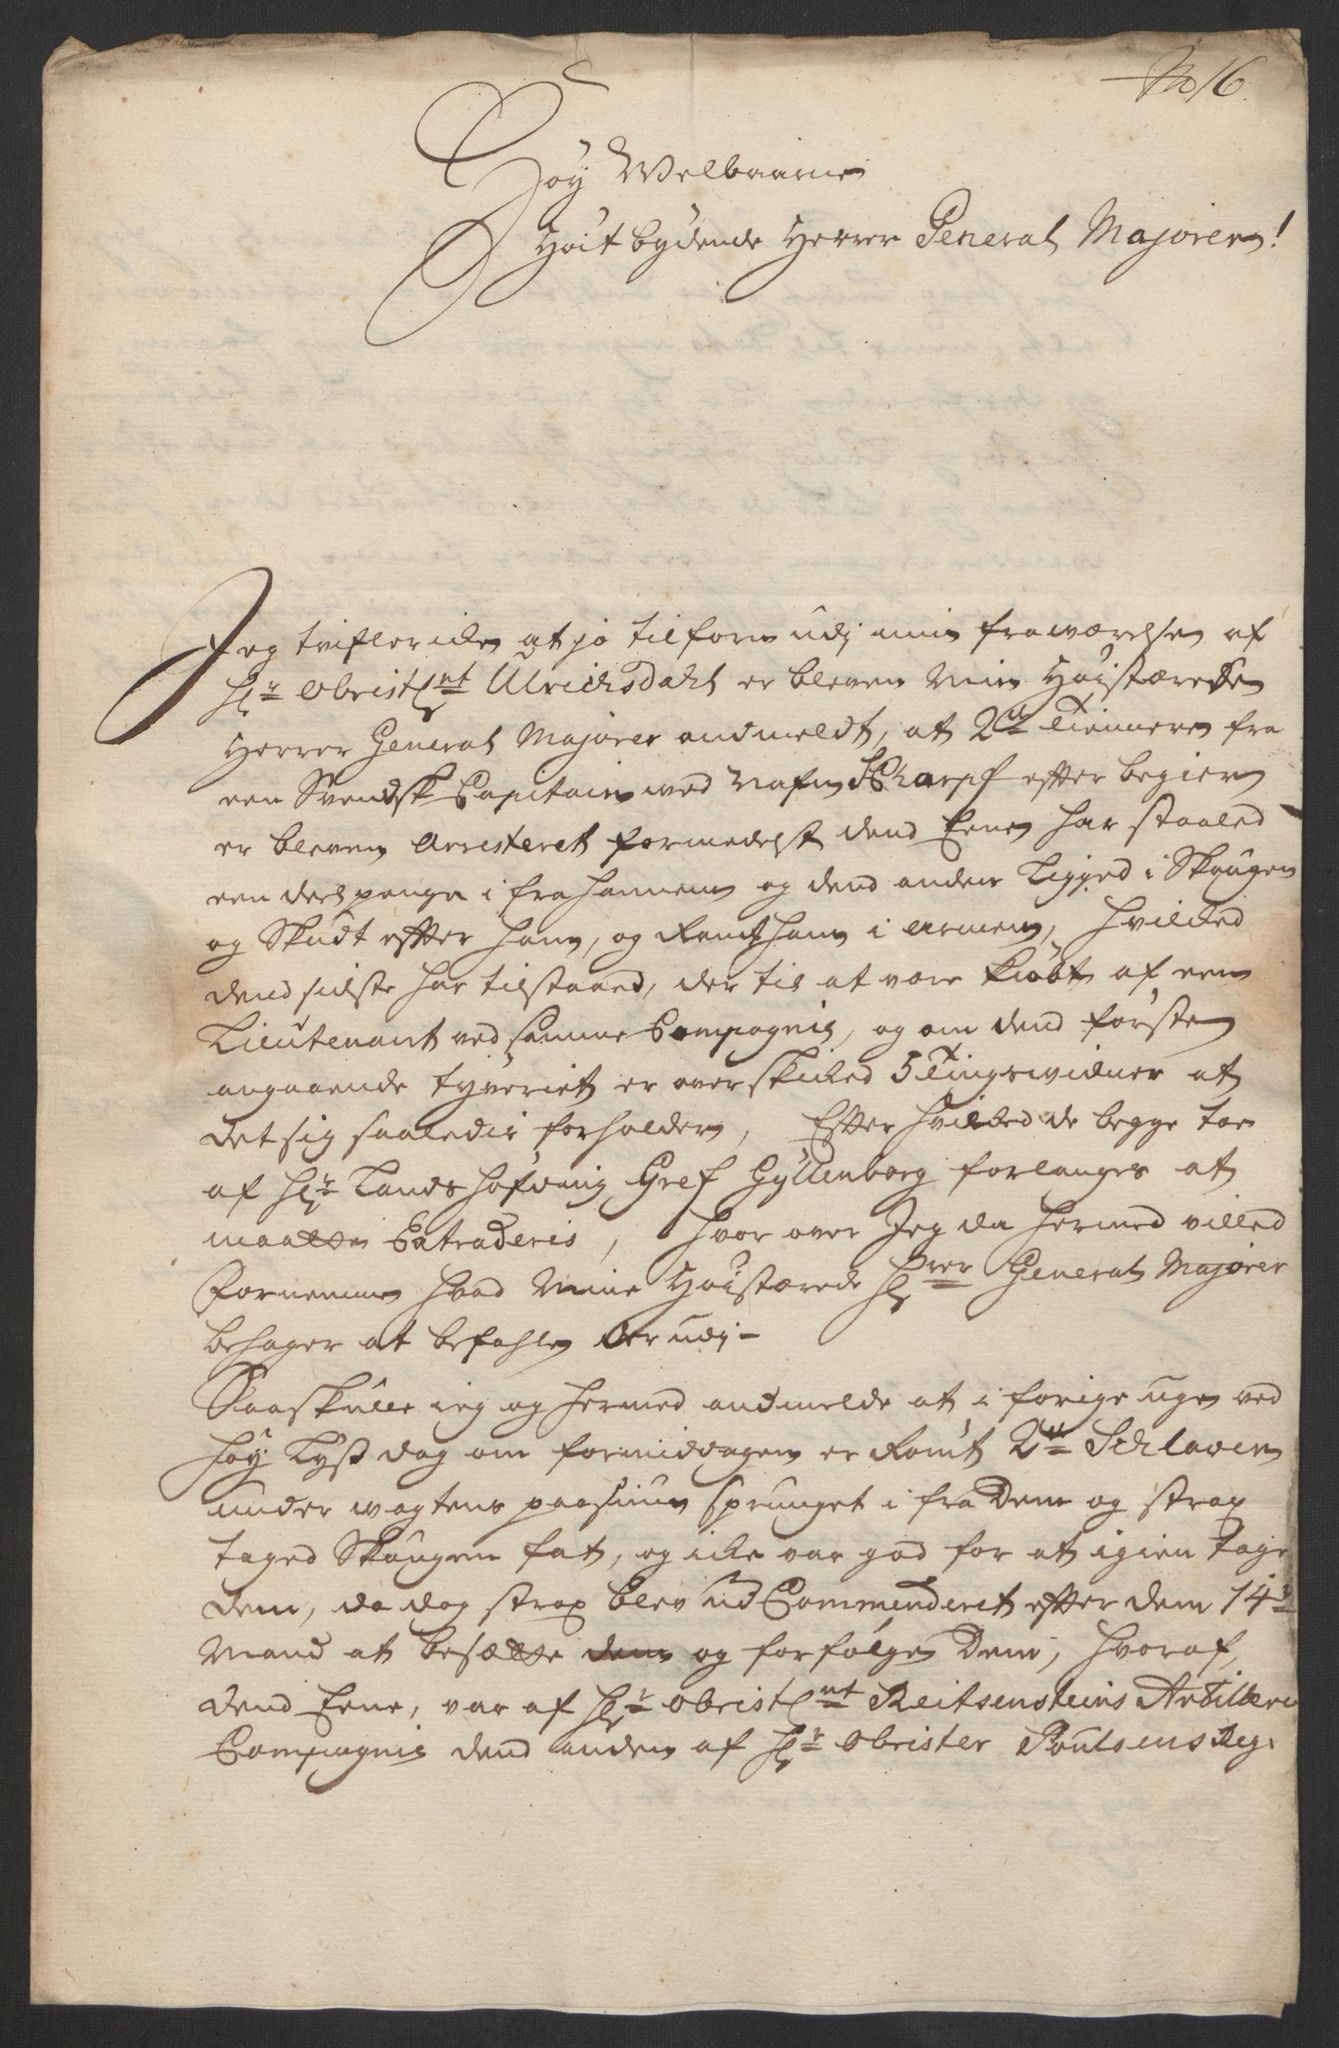 No 16.
Høy Welbaarne
Høit bydende Herrer General Majoren!
Jeg tvifler icke at jo tilforn udj min frawærelse af
Hr Obristlnt Ulrichsdahl er bleven Min Høistærede
Herrer General Majorer andmeldt, at 2de Tiennere fra
een Svendsk Capitain wed Nafn Scharpf efter begiern
er bleven Arresteret formedelst dend Eene har staaled
een deel penge i fra hannem og dend anden Ligged i Skougen
og Skudt effter ham, og Ramt ham i Armen, hvilcked
dend sidste har tilstaaed, der til at være kiøbt af een
Lieutenant ved samme Compagnie, og om dend første
angaaende tyveriet er overskicked 5 Tingswidner at
det sig saaledis forholder, Effter hvilcked de begge toe
af Hr Landshøfding Gref Gyllenborg forlanges at
maatte Extraderis, hvor over Jeg da hermed villed
Fornemme hvad Mine Høistærede Hrrer General Majorer
behager at befahle der udj-
Saa skulle ieg og hermed andmelde at i forige uge ved
høy Lys dag om formiddagen er Romt 2de Schlaver
under wagtens paasiun sprunget i fra Dem og strax
taged Skougen fat, og icke var god for at igien tage
dem, da dog strax blev ud Commenderet effter dem 14n
Mand at besætte dem og forfølge Dem, hvoraf
dend Eene, var af Hr Obristlnt Reitsensteins Artilleri
Compagnie dend anden af Hr Obrister Poulsens Reg: